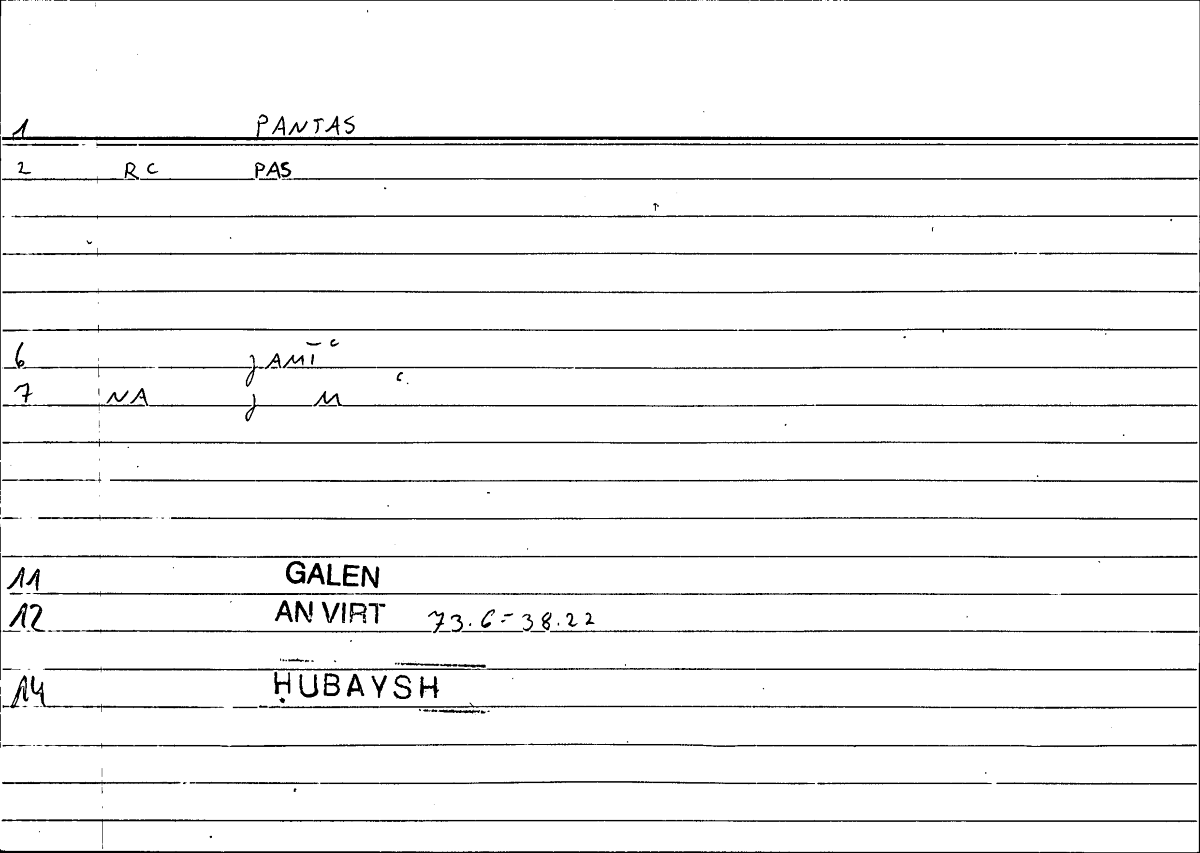 1 PANTAS
2 RC PAS
6 jAMĪc
7 NA j M c
11 GALEN
12 AN VIRT 73.6-38.22
14 ḤUBAYSH